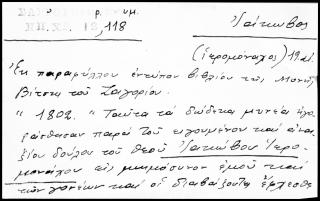 Ἰάκωβος
ΗΠ.ΧΣ. 12,118
(ἱερομόναχος) 19 αἰ.
Ἐκ παραφύλλου ἐντύπου βιβλίου τῆς Μονῆς
Βίτσης τοῦ Ζαγορίου.
"1802. "Ταῦτα τά δώδεκα μηνεῖα ἠγο-
ράσθησαν παρά τοῦ ἡγουμένου καί ἀνα-
ξίου δούλου τοῦ Θεοῦ Ἰακώβου Ἱερο-
μονάχου εἰς μνημόσυνον ἐμοῦ καί
τῶν γονέων καί οἱ διαβάζοντες